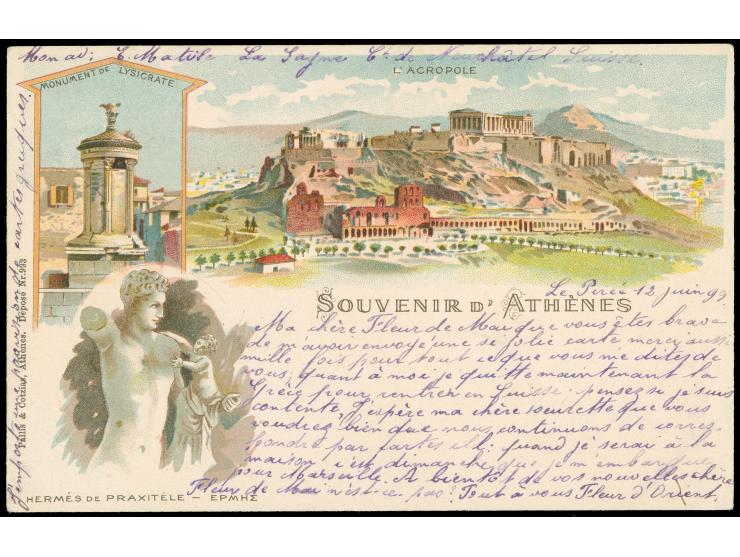 Mon ad: E. Matile La Sagne Ct. de Neuchâtel Suisse.
MONUMENT DE LYSICRATE
L'ACROPOLE
SOUVENIR D'ATHÈNES
Le Pirée 12 juin 99.
Ma chère Fleur de Mai que vous êtes brave
de m'avoir envoyé une si jolie carte merci aussi
mille fois pour tout ce que vous me dites de
vous, quant à moi je quitte maintenant la
Grèce pour rentrer en Suisse. pensez si je suis
contente. J'espère ma chère soeurette que vous
voudrez bien que nous continuons de corres-
pondre par cartes ill: quand je serai à la
maison c'est dimanche que je m'embarque
pour Marseille. A bientôt de vos nouvelles chère
Fleur de Mai n'est-ce pas? Tout à vous Fleur d'Orient.
J'emporte une provision de cartes grecques.
Pallis & Cotzias, Athènes, Déposé Nr. 993
HERMÉS DE PRAXITÉLE — ΕΡΜΗΣ